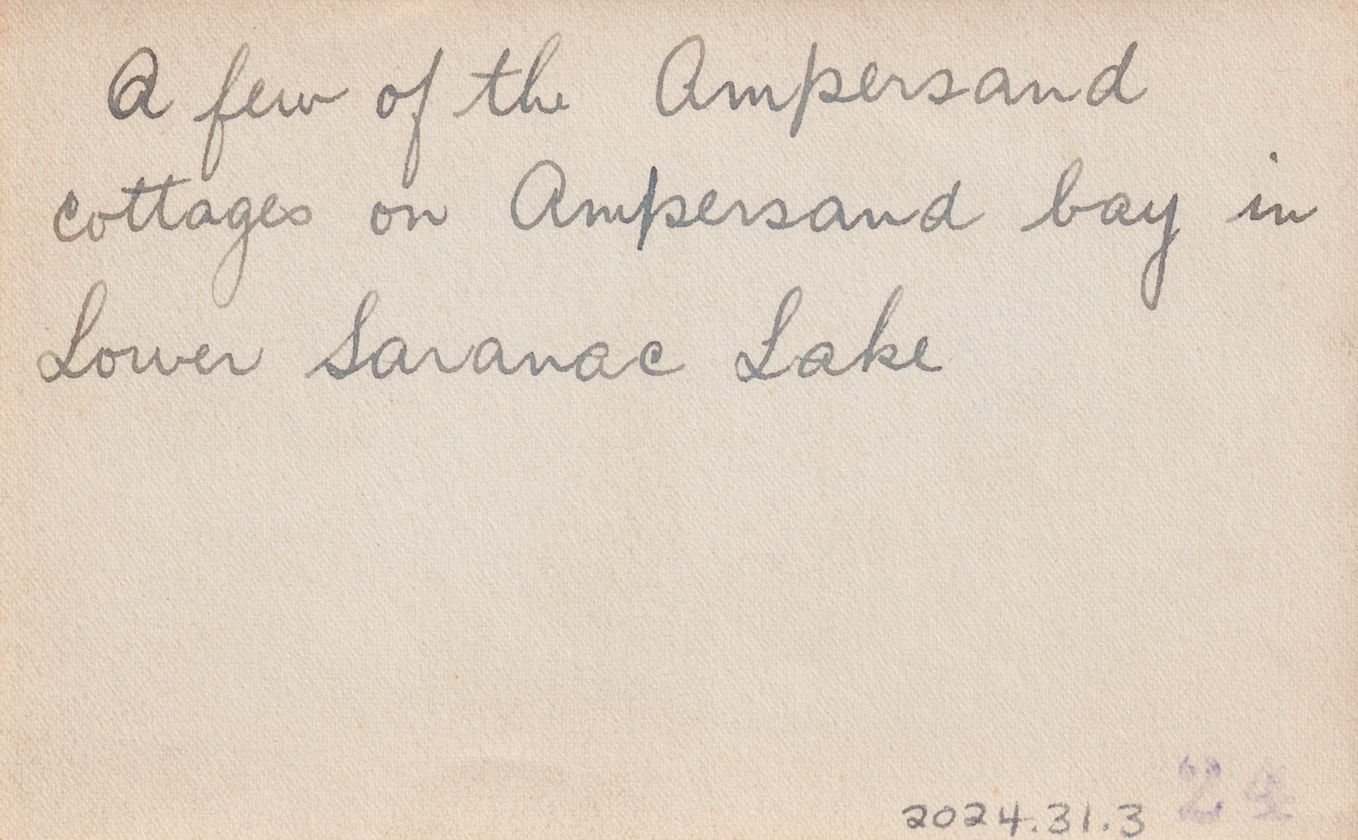 A few of the Ampersand
cottages on Ampersand bay in
Lower Saranac Lake
2024.31.3